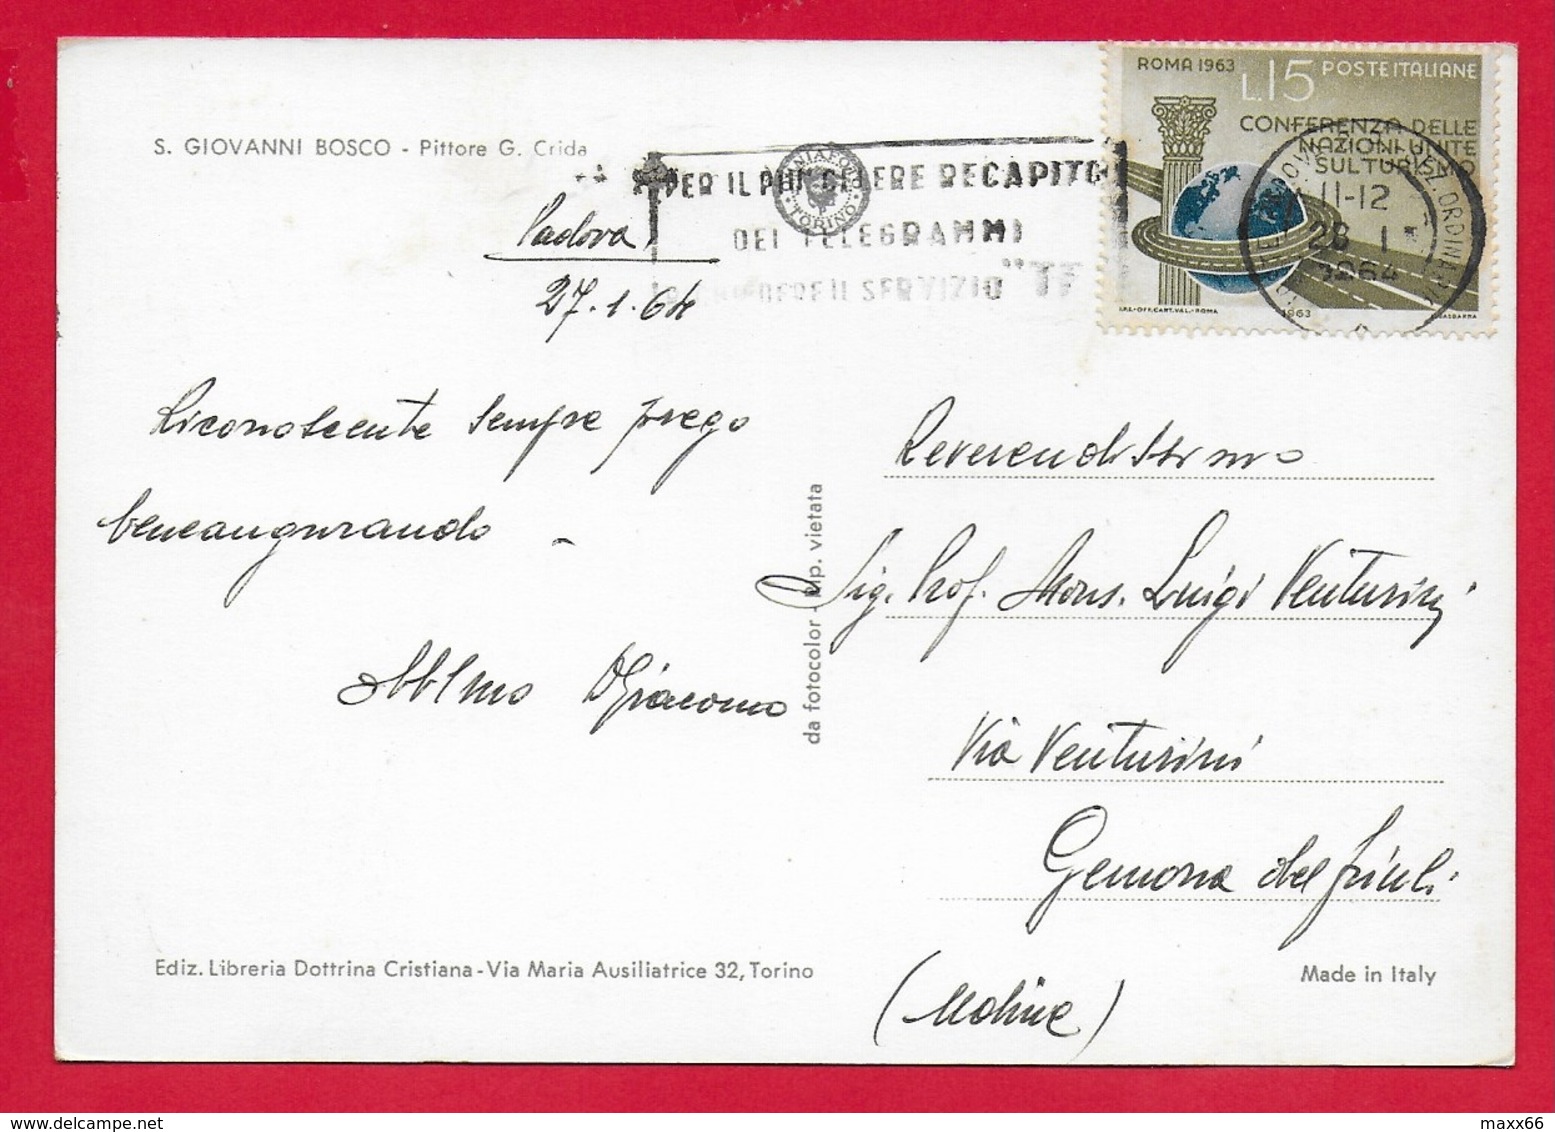 S. GIOVANNI BOSCO - Pittore G. Crida
ROMA 1963
L.15 POSTE ITALIANE
CONFERENZA DELLE
NAZIONI UNITE
SUL TURISMO
I.P.S.-OFF.CART.VAL.-ROMA
1963
11-12
28 1
1964
PER IL PIU' CELERE RECAPITO
DEI TELEGRAMMI
IL SERVIZIO "TF
TORINO
Padova
27.1.64
Riconoscente sempre prego
beneaugurando -
obbl.mo DGiacomo
da fotocolor - Rip. vietata
Reverendissimo
Sig. Prof. Mons. Luigi Venturini
Via Venturini
Gemona del Friuli
(Udine)
Ediz. Libreria Dottrina Cristiana - Via Maria Ausiliatrice 32, Torino
Made in Italy
maxx66